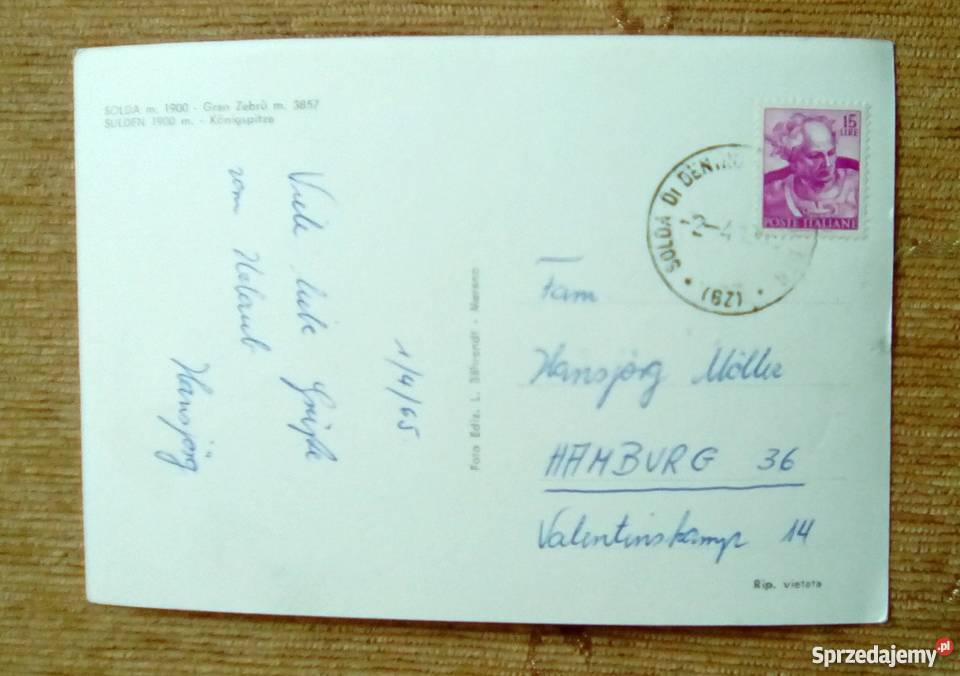 SOLDA m. 1900 - Gran Zebrù m. 3857
SULDEN 1900 m. - Königspitze
Viele liebe Grüße
vom Urlaub
Hansjörg
1/4/65
Foto Ediz. L. - Merano
15
LIRE
POSTE ITALIANE
SOLDA DI
2-4
(BZ)
Fam
Hansjörg Möller
HAMBURG 36
Valentinskamp 14
Rip. vietata
Sprzedajemy.pl